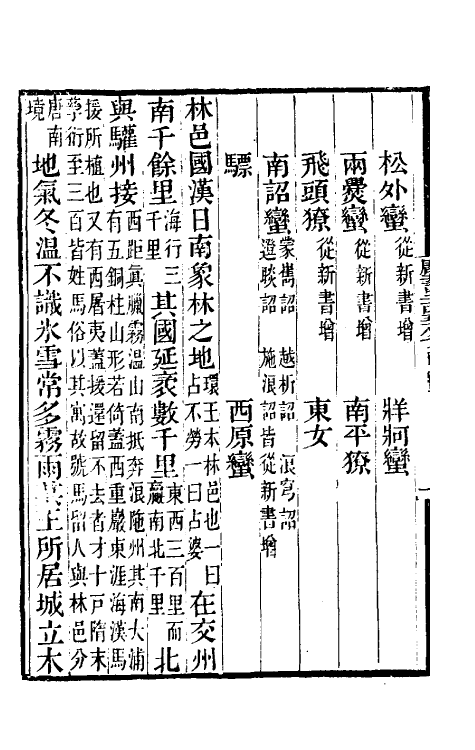 松外蠻從新書增　牂牁蠻
兩爨蠻從新書增　南平獠
飛頭獠從新書增　東女
南詔蠻蒙雋詔　越析詔　浪穹詔
邆賧詔　施浪詔皆從新書增
驃　西原蠻
林邑國漢日南象林之地環王本林邑也一曰
占不勞一曰占婆在交州
南千餘里海行三
千里其國延袤數千里東西三百里而
贏南北千里北
與驩州接西距真臘霧溫山南抵奔浪陁州其南大浦
有五銅柱山形若倚蓋西重巖東涯海漢馬
援所植也又有西屠夷蓋援還留不去者才十戶隋末
孳衍至三百皆姓馬俗以其寓故號馬留人與林邑分
唐南
境地氣冬溫不識氷雪常多霧雨其王所居城立木